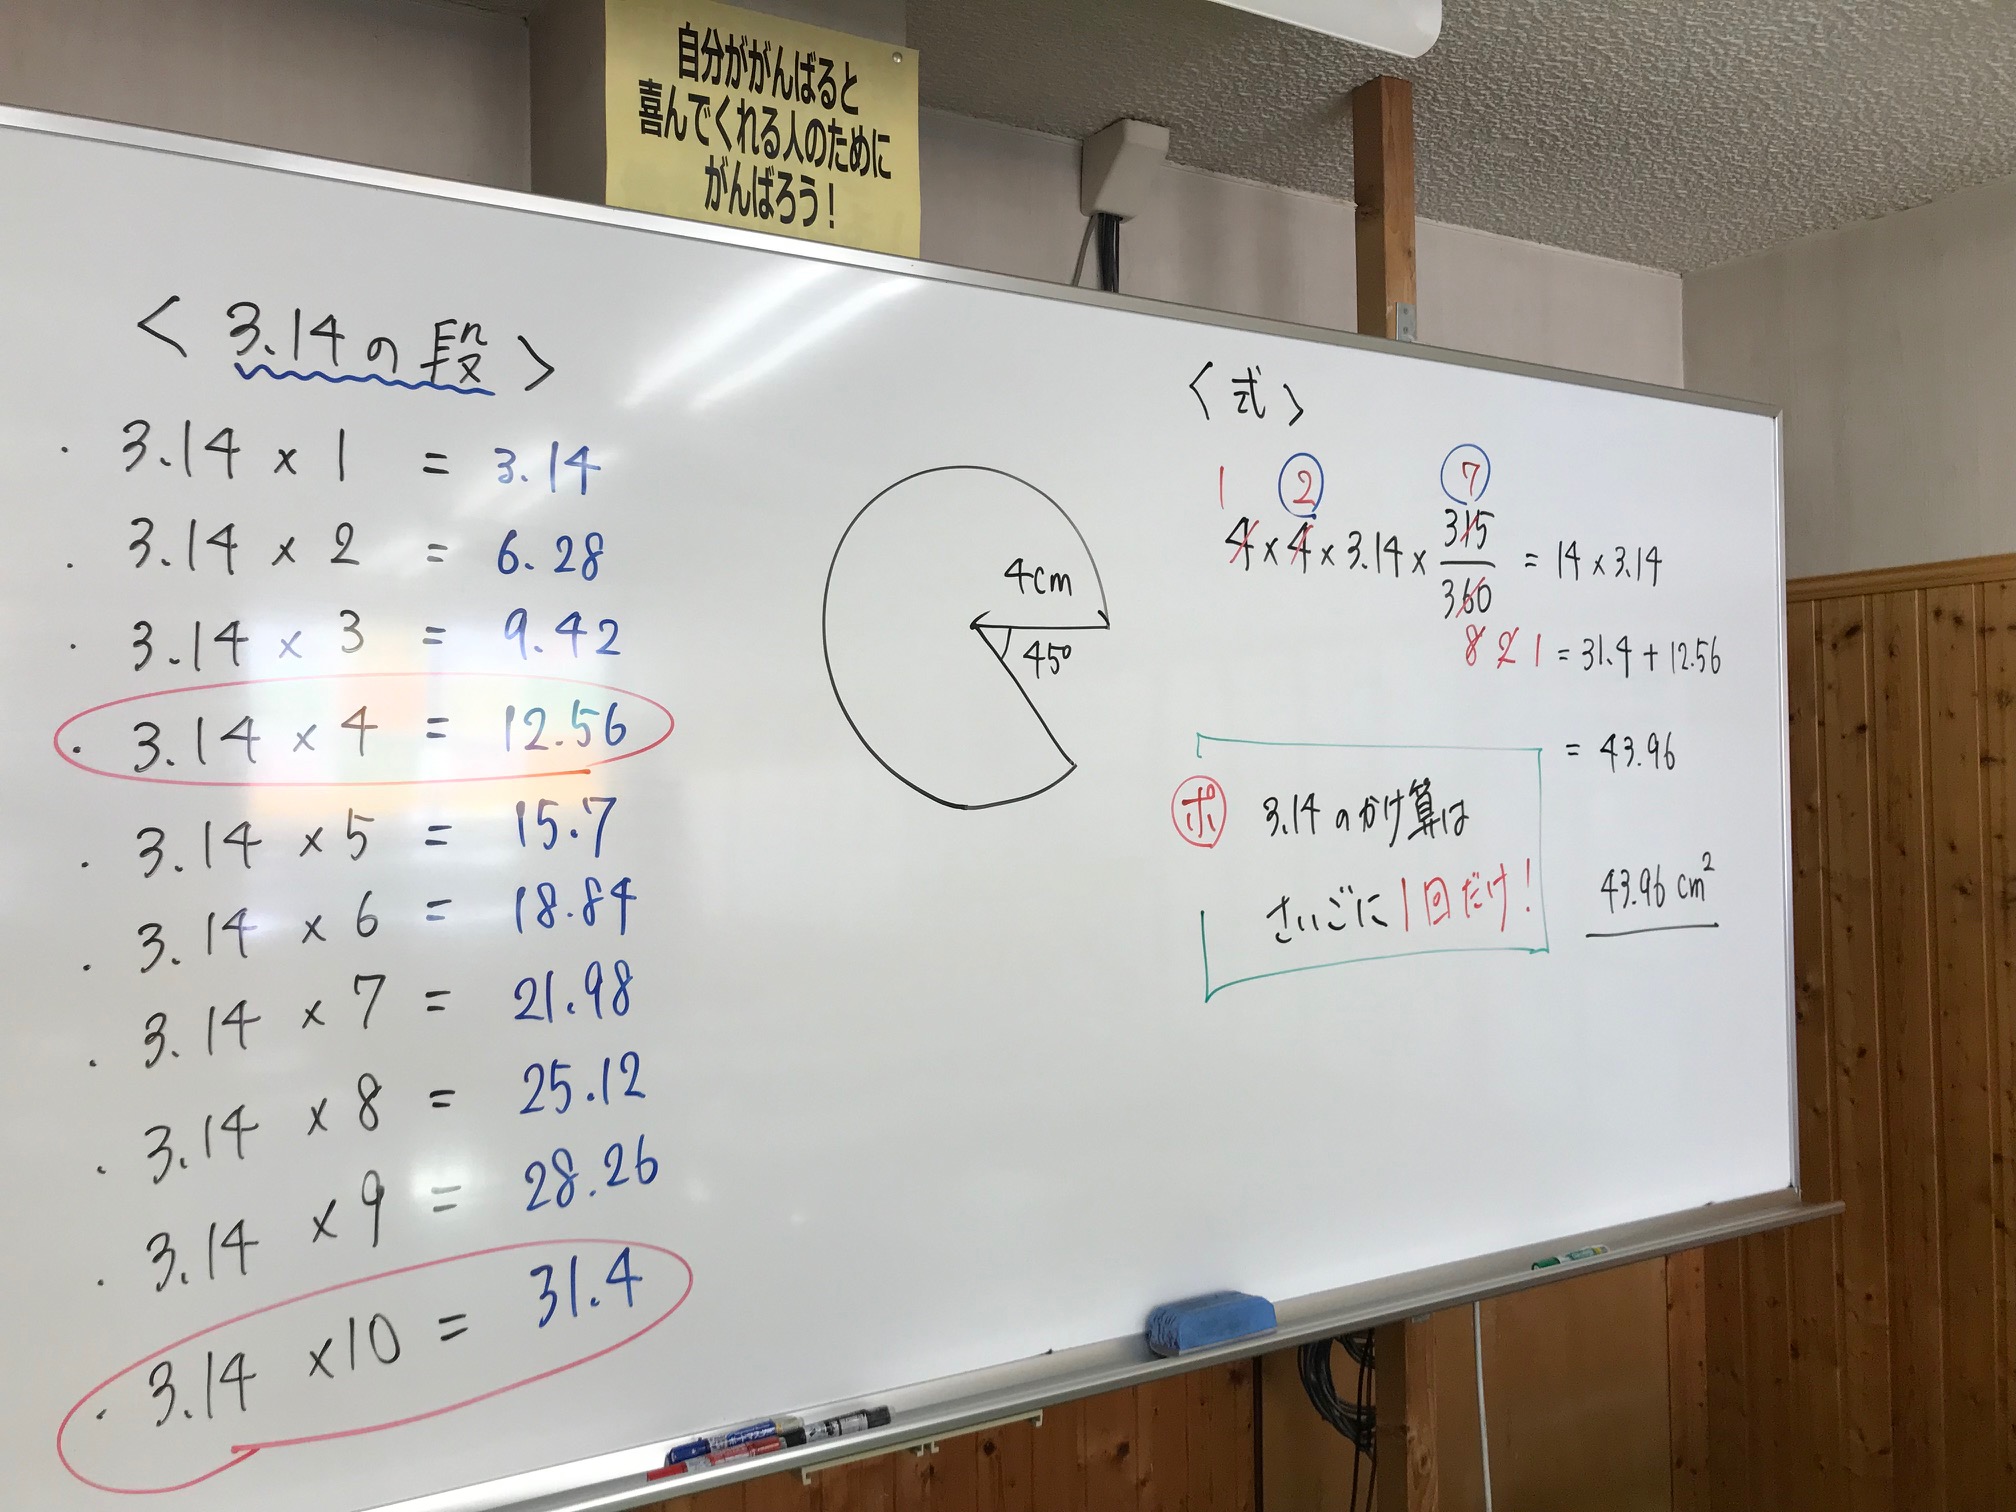 自分ががんばると
喜んでくれる人のために
がんばろう!
< 3.14の段 >
・ 3.14 × 1 = 3.14
・ 3.14 × 2 = 6.28
・ 3.14 × 3 = 9.42
・ 3.14 × 4 = 12.56
・ 3.14 × 5 = 15.7
・ 3.14 × 6 = 18.84
・ 3.14 × 7 = 21.98
・ 3.14 × 8 = 25.12
・ 3.14 × 9 = 28.26
・ 3.14 ×10 = 31.4
4cm
45°
<式>
1 2 7
4×4×3.14× 315/360 = 14×3.14
8 2 1 = 31.4+12.56
= 43.96
ポ 3.14のかけ算は
さいごに1回だけ!
43.96 cm²